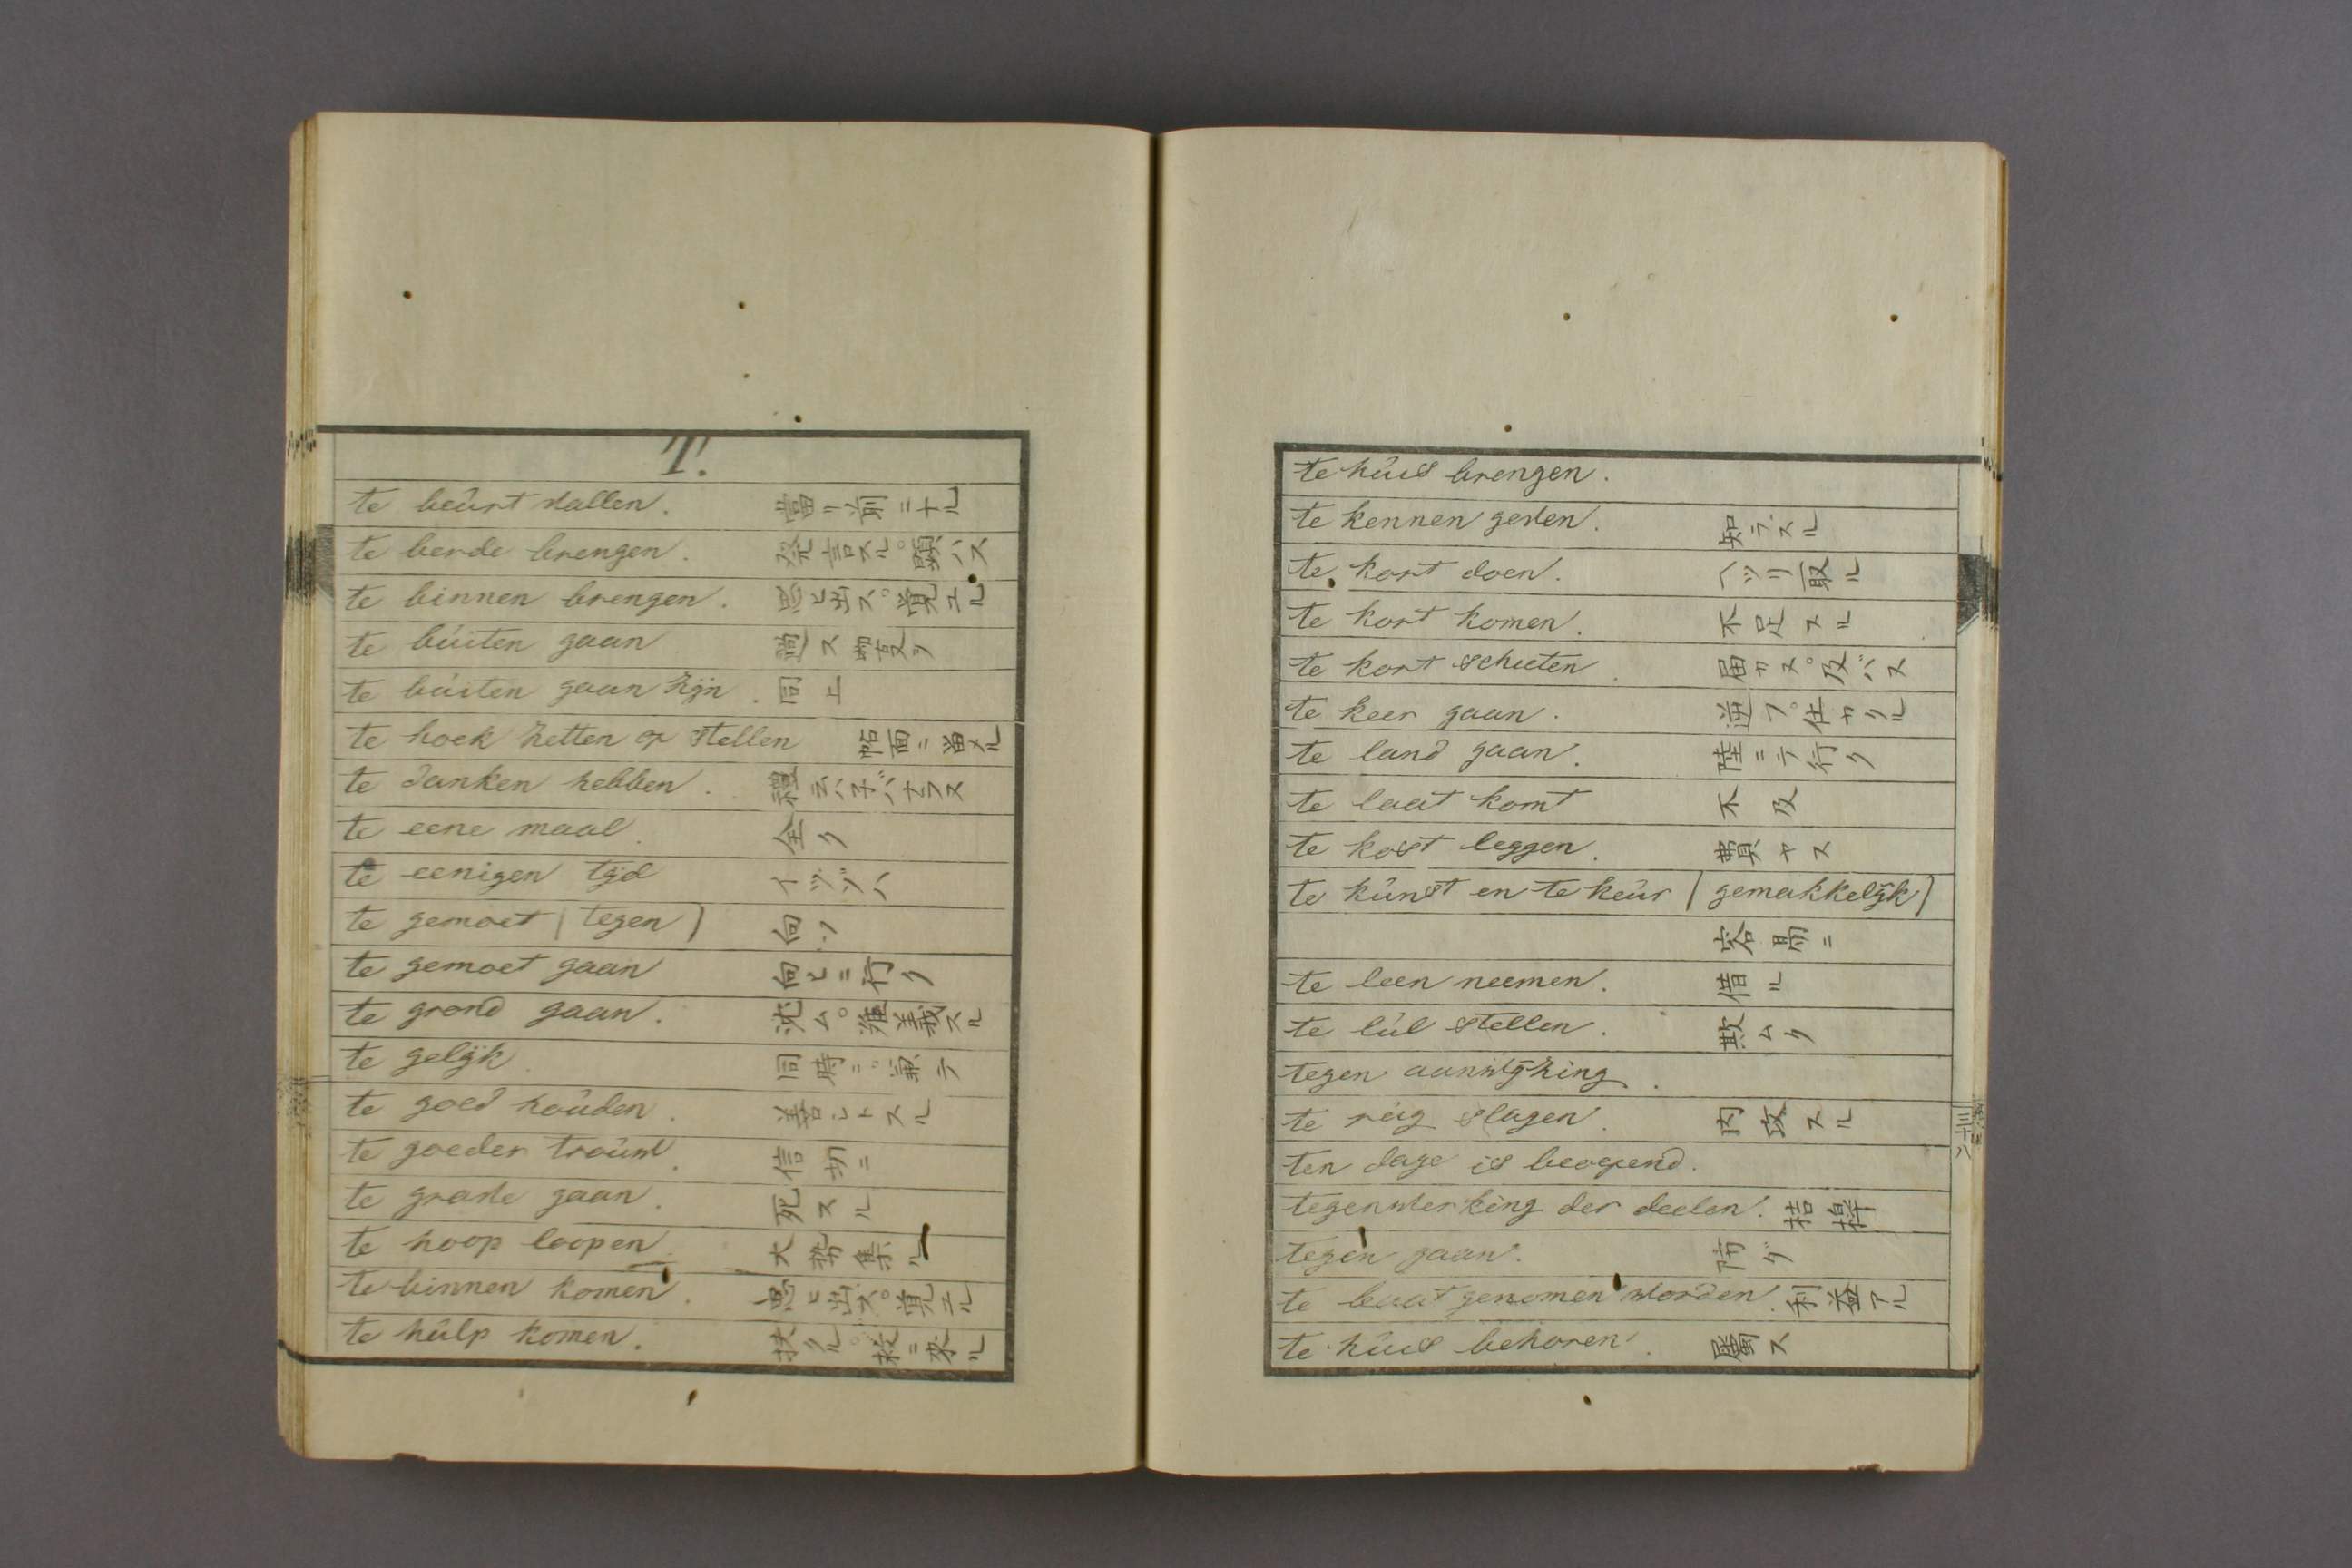 T.
te beûrt vallen. 當リ前ニナル
te berde brengen. 発言スル。顕ハス
te binnen brengen. 思ヒ出ス。覚エル
te bûiten gaan 過ス
te bûiten gaan zijn. 同上
te boek zetten of stellen 帖面ニ留メル
te danken hebben. 禮云ハ子バナラヌ
te eene maal. 全ク
te eenigen tijd イツゾハ
te gemoet (tegen) 向ツ
te gemoet gaan 向ヒニ行ク
te grond gaan. 沈ム。
te gelijk. 同時ニ
te goed hoûden. 善シトスル
te goeder troûw. 信切ニ
te grave gaan. 死スル
te hoop loopen 大勢集ル
te binnen komen. 思ヒ出ス。覚エル
te hûlp komen. 扶クル。救ニ来ル
te hûis brengen.
te kennen geven. 知ラスル
te kort doen. ヘツリ取ル
te kort komen. 不足スル
te kort schieten. 届カヌ。及バヌ
te keer gaan. 逆フ。
te land gaan. 陸ニテ行ク
te laat komt 不及
te kost leggen. 費ヤス
te kûnst en te keûr (gemakkelijk)
容易ニ
te leen neemen. 借ル
te lûl stellen. 欺ムク
tegen aanwijzing.
te rûg slagen. 内攻スル
ten dage is beoepend.
tegenwerking der deelen. 拮
tegen gaan. 防グ
te baat genomen worden. 利益アル
te hûis behoren. 屬ス
三十八